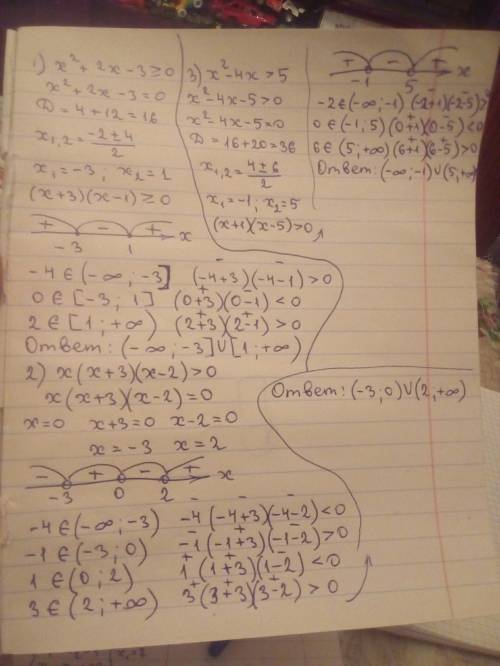 1) x² + 2x - 3 ≥ 0
x² + 2x - 3 = 0
D = 4 + 12 = 16
x₁,₂ = (-2 ± 4)/2
x₁ = -3, x₂ = 1
(x+3)(x-1) ≥ 0
+ - +
-3 1 x
-4 ∈ (-∞; -3] (-4+3)(-4-1) > 0
0 ∈ [-3; 1] (0+3)(0-1) < 0
2 ∈ [1; +∞) (2+3)(2-1) > 0
Ответ: (-∞; -3]∪[1; +∞)
2) x(x+3)(x-2) > 0
x(x+3)(x-2) = 0
x=0 x+3=0 x-2=0
x = -3 x = 2
- + - +
-3 0 2 x
-4 ∈ (-∞; -3) -4(-4+3)(-4-2) < 0
-1 ∈ (-3; 0) -1(-1+3)(-1-2) > 0
1 ∈ (0; 2) 1(1+3)(1-2) < 0
3 ∈ (2; +∞) 3(3+3)(3-2) > 0
Ответ: (-3; 0)∪(2; +∞)
3) x² - 4x > 5
x² - 4x - 5 > 0
x² - 4x - 5 = 0
D = 16 + 20 = 36
x₁,₂ = (4 ± 6)/2
x₁ = -1; x₂ = 5
(x+1)(x-5) > 0
+ - +
-1 5 x
-2 ∈ (-∞; -1) (-2+1)(-2-5) >
0 ∈ (-1; 5) (0+1)(0-5) < 0
6 ∈ (5; +∞) (6+1)(6-5) > 0
Ответ: (-∞; -1)∪(5; +∞)